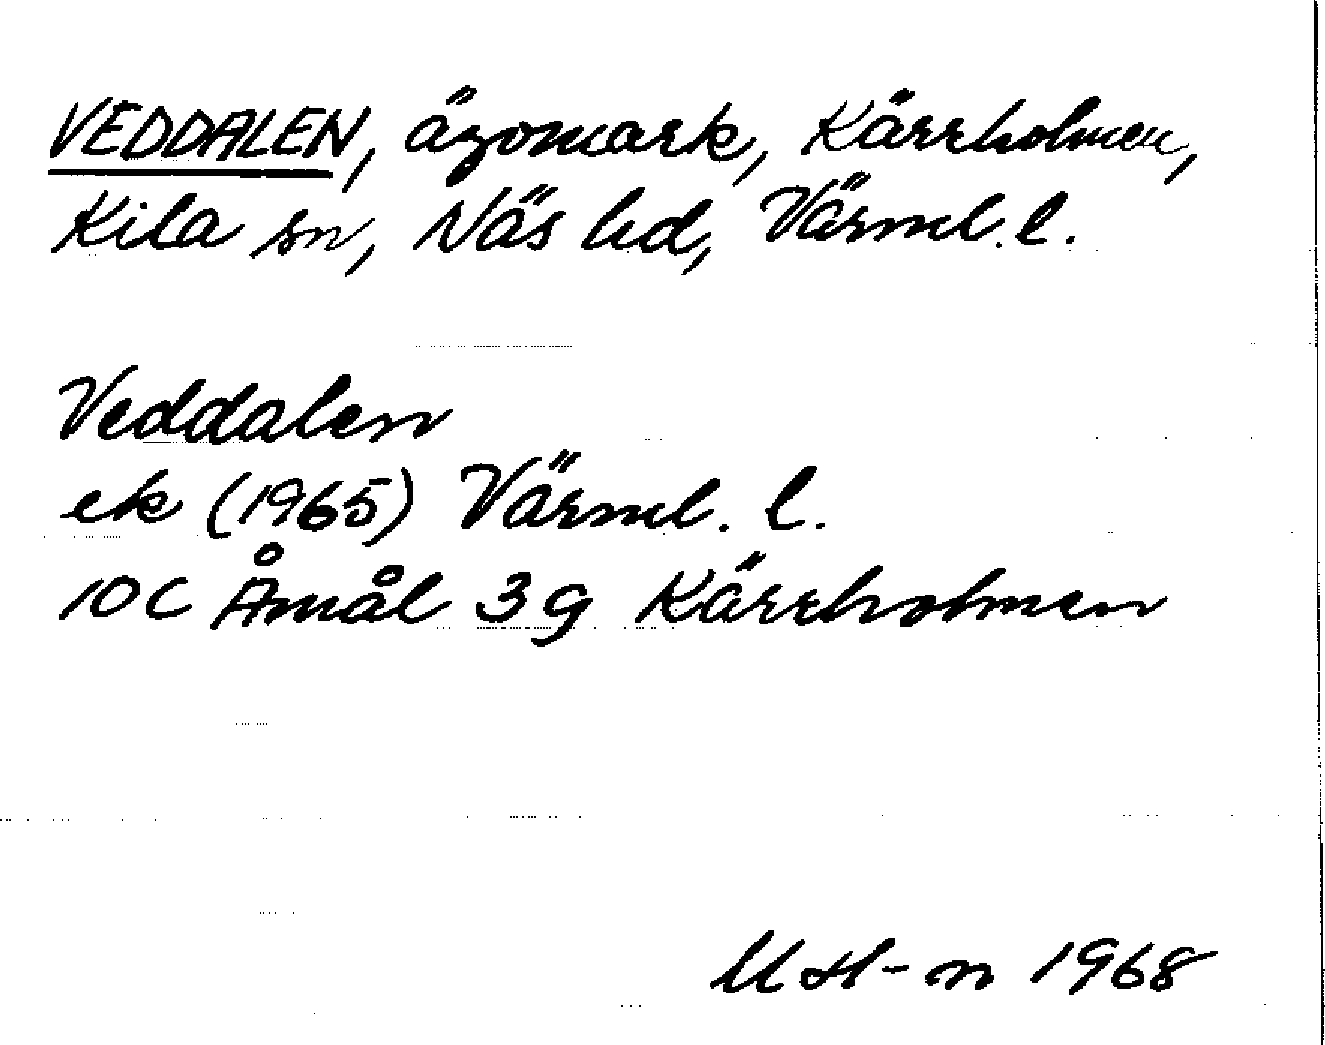 VEDDALEN, ägomark, Kärrholmen,
Kila sn, Näs hd, Värml. l.
Veddalen
ek (1965) Värml. l.
10C Åmål 3g Kärrholmen
MH-n 1968